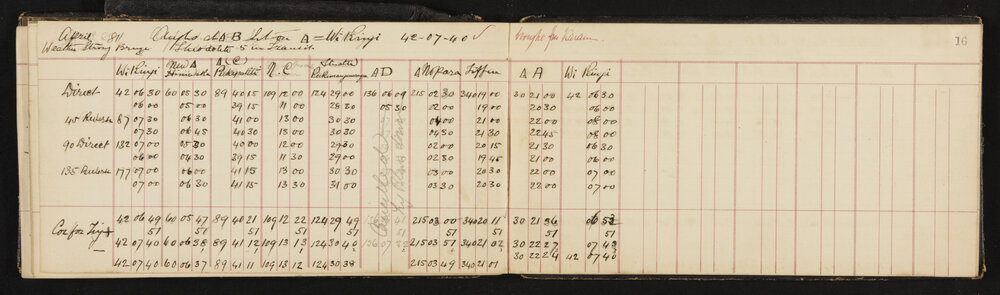 April 1911 Angles at Δ B Set on Δ = Wi Kingi 42-07-40 √
16
Weather Strong Breeze Theodolite 5 in Transit
Wi Kingi New Δ Δ (C) N. C Δ D Δ Nopara Δ A Wi Kingi
Direct 42 06 30 60 05 30 89 40 15 109 12 00 124 29 00 136 06 09 215 02 30 340 19 00 30 21 00 42 06 30
06 00 05 00 39 15 11 00 28 30 05 30 02 00 19 00 20 30 06 00
45 Reverse 87 07 30 06 30 41 00 13 00 30 30 04 00 21 00 22 00 08 00
07 30 06 45 40 30 13 00 30 30 04 30 21 30 22 45 08 00
90 Direct 132 07 00 05 30 40 00 12 00 29 30 02 00 20 15 21 30 06 30
06 00 04 30 39 15 11 30 29 00 02 30 19 45 21 00 06 30
135 Reverse 177 07 00 06 00 41 15 13 00 30 30 03 00 20 30 22 00 07 00
07 00 06 30 41 15 13 30 31 00 03 30 20 30 22 00 07 00
42 06 49 60 05 47 89 40 21 109 12 22 124 29 49 215 03 00 340 20 11 30 21 36 06 53
51 51 51 51 51 51 51
42 07 40 60 06 38 89 41 12 109 13 13 124 30 40 136 07 22 215 03 51 340 21 02 30 22 27 07 43
30 22 24 42 07 40
42 07 40 60 06 37 89 41 11 109 13 12 124 30 38 215 03 49 340 21 01